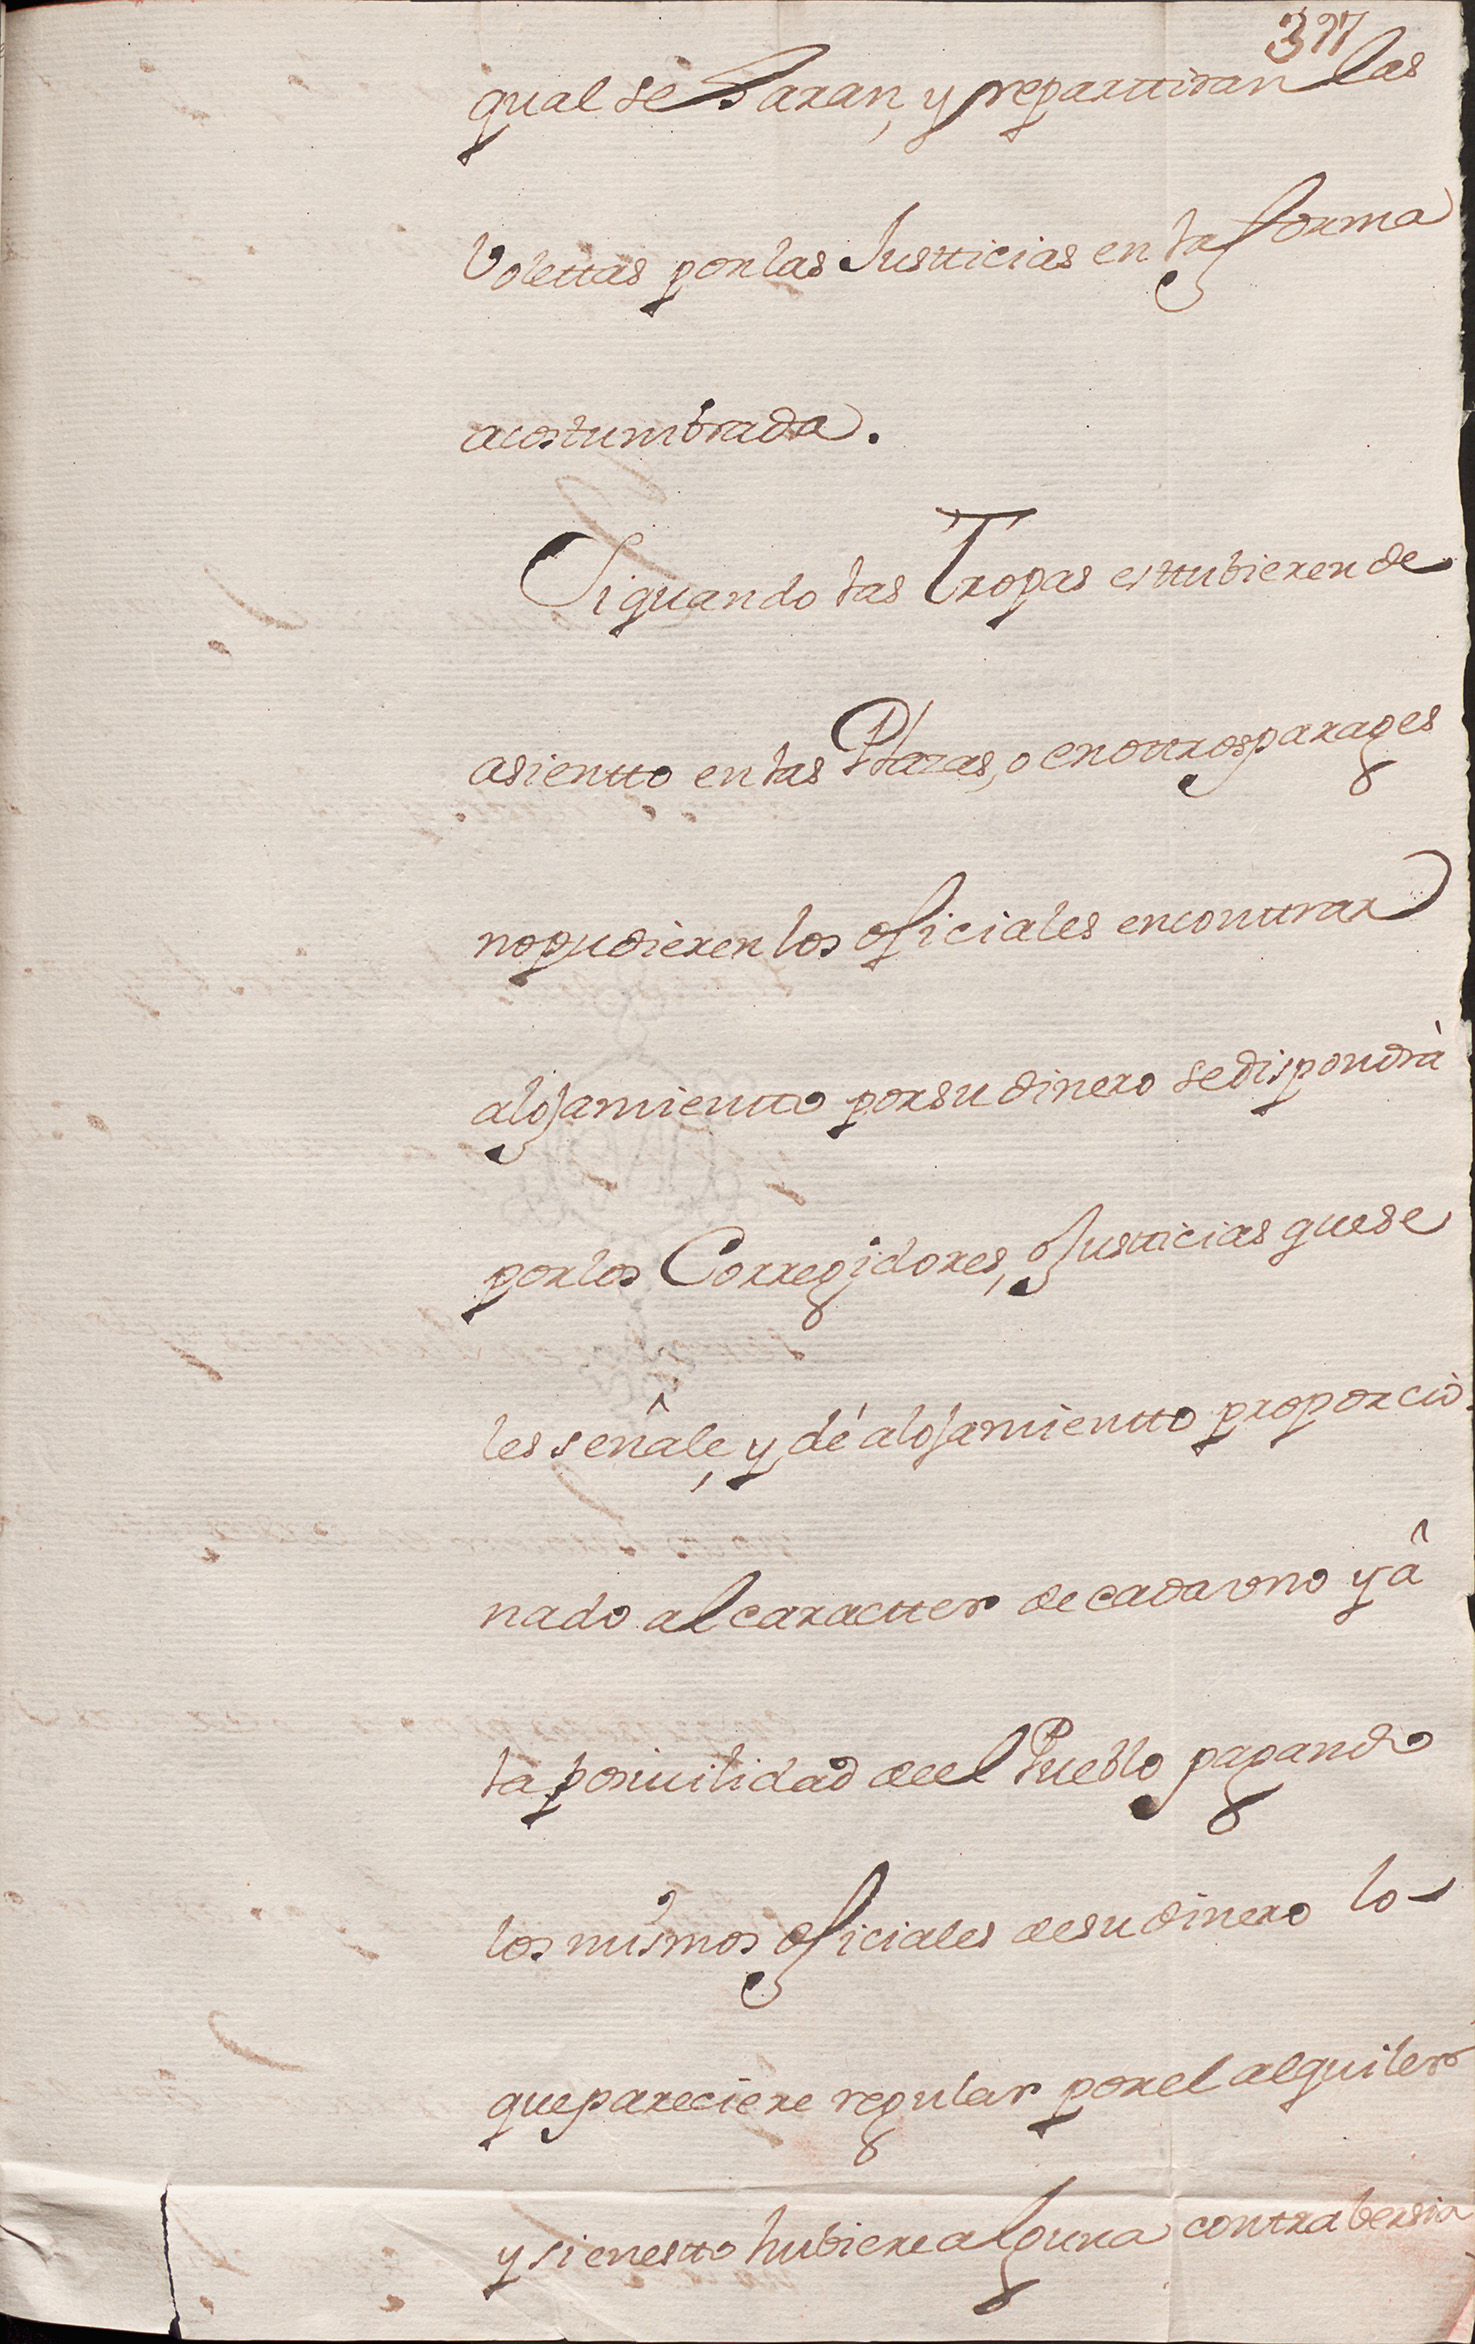 397
qual se haran, y reparttiran las
Volettas por las Justticias en la forma
acostumbrada.
Si quando las Tropas esttubieren de
asientto en las Plazas, o en ottros parages
no pudieren los oficiales enconttrar
alojamientto por su dinero se dispondrà
por los Corregidores, o Justticias que se
les señale, y dé alojamientto proporcio-
nado al caractter de cada vno y â
la posiuilidad de el Pueblo pagando
los mismos oficiales de su dinero lo
que pareciere regular por el alquiler
y si en estto hubiere alguna contrabersia